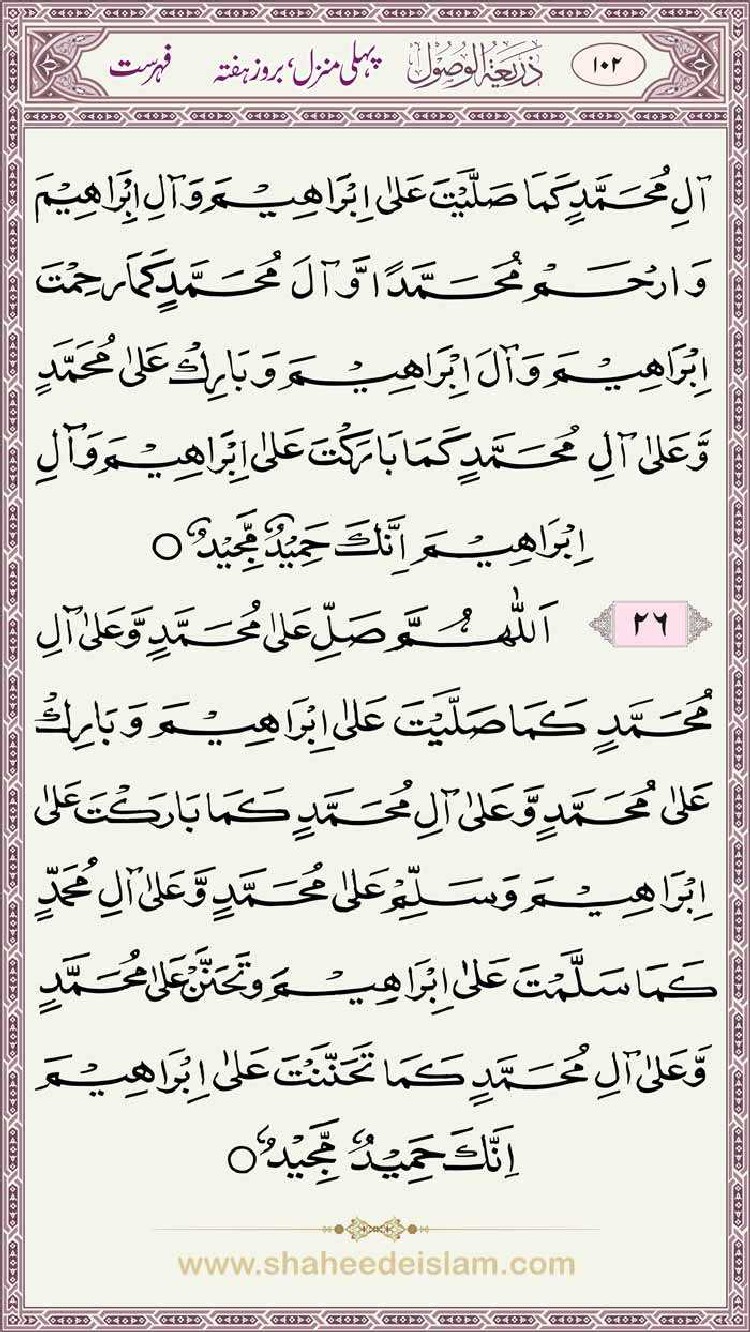 ١٠٢ ذَرِيْعَةُ الْوُصُوْل پہلی منزل، بروز ہفتہ فہرست
آلِ مُحَمَّدٍ كَمَا صَلَّيْتَ عَلٰى اِبْرَاهِيْمَ وَآلِ اِبْرَاهِيْمَ
وَارْحَمْ مُحَمَّدًا وَّآلَ مُحَمَّدٍ كَمَا رَحِمْتَ
اِبْرَاهِيْمَ وَآلَ اِبْرَاهِيْمَ وَبَارِكْ عَلٰى مُحَمَّدٍ
وَّعَلٰى آلِ مُحَمَّدٍ كَمَا بَارَكْتَ عَلٰى اِبْرَاهِيْمَ وَآلِ
اِبْرَاهِيْمَ اِنَّكَ حَمِيْدٌ مَّجِيْدٌ ○
٢٦ اَللّٰهُمَّ صَلِّ عَلٰى مُحَمَّدٍ وَّعَلٰى آلِ
مُحَمَّدٍ كَمَا صَلَّيْتَ عَلٰى اِبْرَاهِيْمَ وَبَارِكْ
عَلٰى مُحَمَّدٍ وَّعَلٰى آلِ مُحَمَّدٍ كَمَا بَارَكْتَ عَلٰى
اِبْرَاهِيْمَ وَسَلِّمْ عَلٰى مُحَمَّدٍ وَّعَلٰى آلِ مُحَمَّدٍ
كَمَا سَلَّمْتَ عَلٰى اِبْرَاهِيْمَ وَتَحَنَّنْ عَلٰى مُحَمَّدٍ
وَّعَلٰى آلِ مُحَمَّدٍ كَمَا تَحَنَّنْتَ عَلٰى اِبْرَاهِيْمَ
اِنَّكَ حَمِيْدٌ مَّجِيْدٌ ○
www.shaheedeislam.com